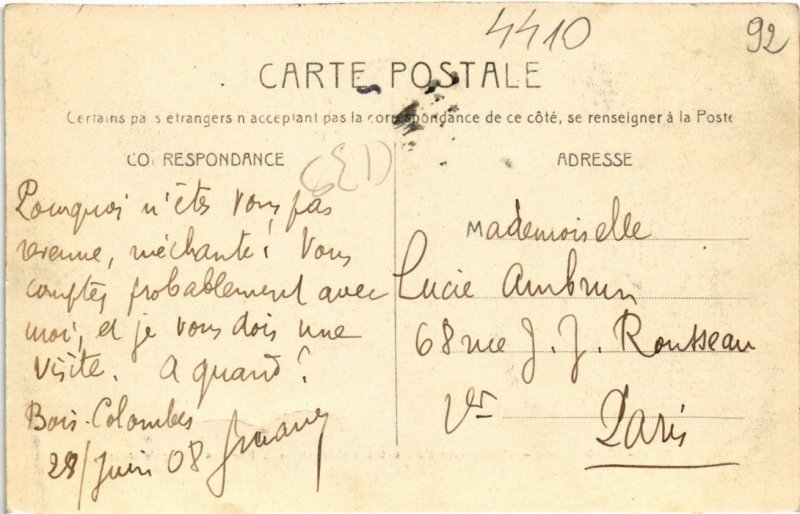 4410
92
CARTE POSTALE
Certains pays étrangers n acceptant pas la correspondance de ce côté, se renseigner à la Poste
CO RESPONDANCE
ADRESSE
Pourquoi n'êtes vous pas
venue, méchante! Vous
comptez probablement avec
moi, et je vous dois une
visite. A quand?
Bois-Colombes
28/Juin 08
Mademoiselle
Lucie Ambrun
68 rue J. J. Rousseau
Paris